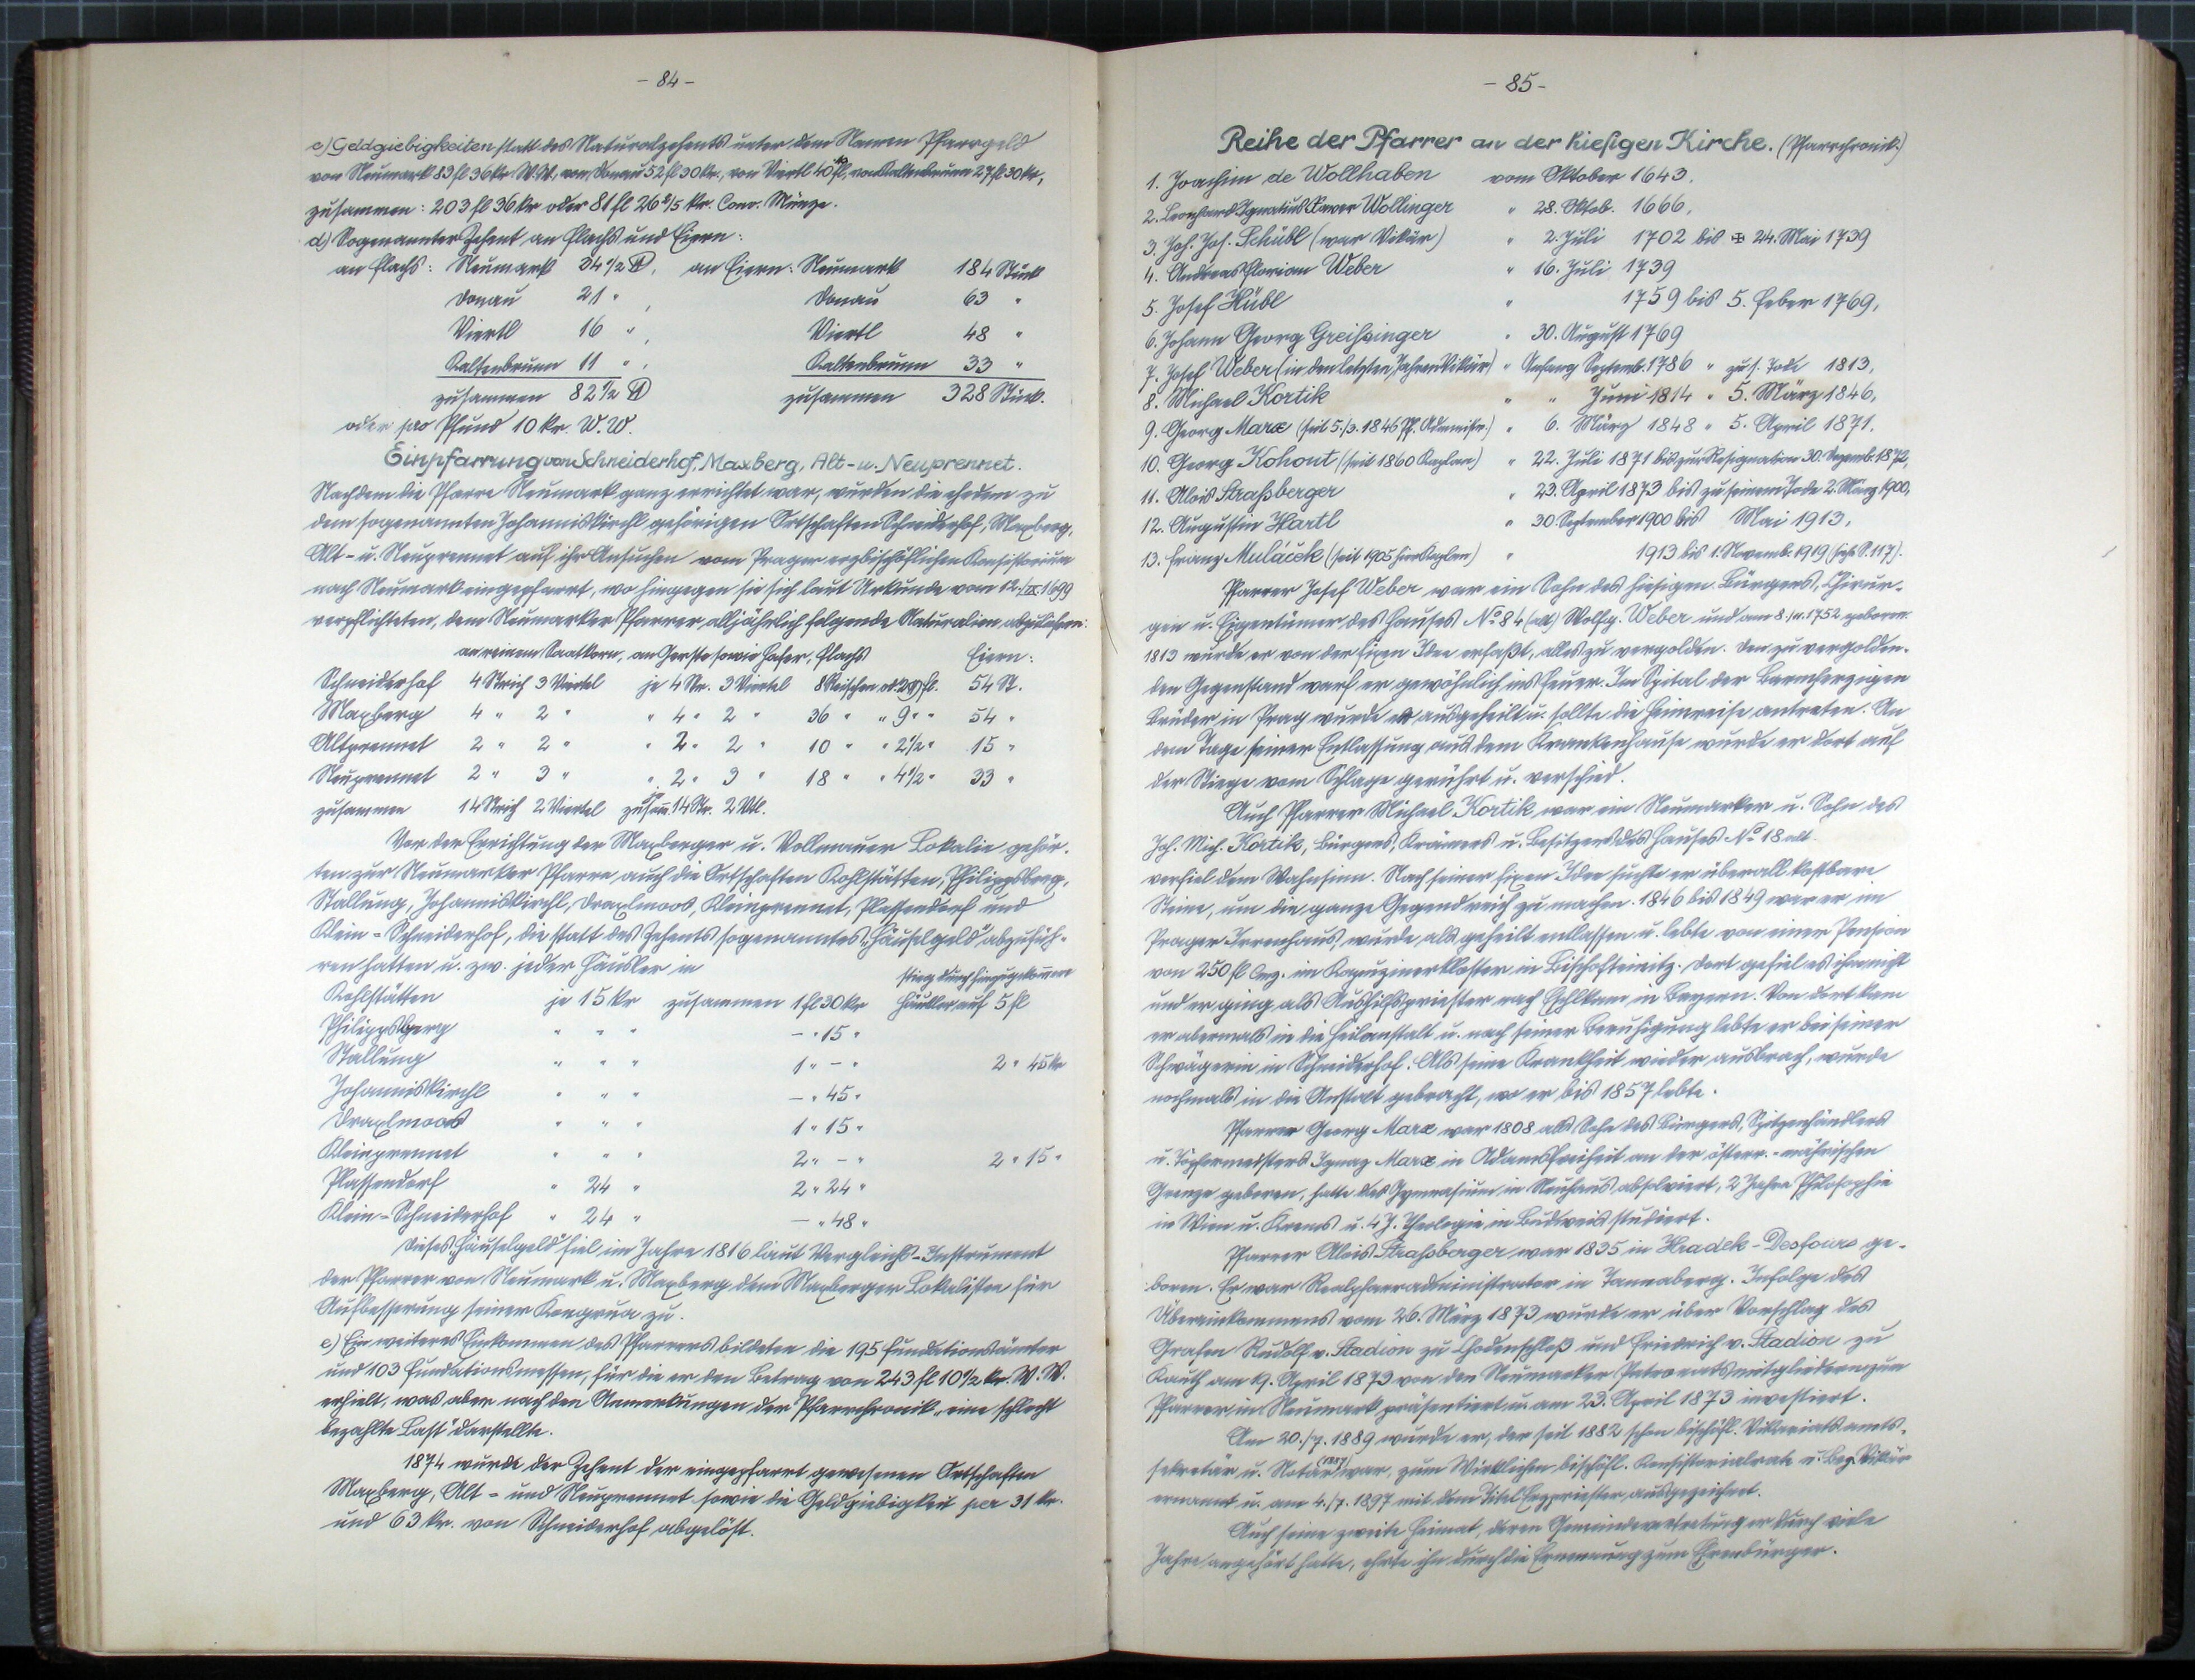 - 84 -
c) Geldgiebigkeiten statt des Naturalzehents unter dem Namen Pfarrgeld
von Neumark 83 fl 36 kr W. W., von Donau 52 fl 30 kr., von Viertl 40 fl, von Kaltenbrunn 27 fl 30 kr,
zusammen: 203 fl 36 kr oder 81 fl 26 2/5 kr. Conv. Münze.
d) Sogenannter Zehent an Flachs und Eiern:
an Flachs: Neumark 34 1/2 ℔, an Eiern: Neumark 184 Stück
Donau 21 " , Donau 63 "
Viertl 16 " , Viertl 48 "
Kaltenbrunn 11 " , Kaltenbrunn 33 "
zusammen 82 1/2 ℔ zusammen 328 Stück.
oder pro Pfund 10 kr. W. W.
Einpfarrung von Schneiderhof, Maxberg, Alt- u. Neuprennet.
Nachdem die Pfarre Neumark ganz errichtet war, wurden die ehedem zu
dem sogenannten Johanniskirchl gehörigen Ortschaften Schneiderhof, Maxberg,
Alt- u. Neuprennet auf ihr Ansuchen vom Prager erzbischöflichen Konsistorium
nach Neumark eingepfarrt, wo hingegen sie sich laut Urkunde vom 12./IX. 1699
verpflichteten, dem Neumarker Pfarrer alljährlich folgende Naturalien abzuliefern:
an reinem Saatkorn, an Gerste sowie Hafer, Flachs Eiern:
Schneiderhof 4 Strich 3 Viertel je 4 Str. 3 Viertel 8 Reischen od. 2 ℔ fl. 54 St.
Maxberg 4 " 2 " " 4 " 2 " 36 " " 9 " " 54 "
Altprennet 2 " 2 " " 2 " 2 " 10 " " 2 1/2 " 15 "
Neuprennet 2 " 3 " " 2 " 3 " 18 " " 4 1/2 " 33 "
zusammen 14 Strich 2 Viertel zusam̄ 14 Str. 2 Vtl.
Vor der Errichtung der Maxberger u. Vollmauer Lokalie gehör-
ten zur Neumarker Pfarre auch die Ortschaften Kohlstätten, Philippsberg,
Stallung, Johanniskirchl, Draxlmoos, Kleinprennet, Plassendorf und
Klein-Schneiderhof, die statt des Zehents sogenanntes „Häuselgeld" abzufüh-
ren hatten u. zw. jeder Häusler in
stieg durch hinzugekom̄ene
Kohlstätten je 15 kr zusammen 1 fl 30 kr Häusler auf 5 fl
Philippsberg " " " - " 15 "
Stallung " " " 1 " - " 2 " 45 kr
Johanniskirchl " " " - " 45 "
Draxlmoos " " " 1 " 15 "
Kleinprennet " " " 2 " - " 2 " 15 "
Plassendorf " 24 " 2 " 24 "
Klein-Schneiderhof " 24 " - " 48 "
Dieses „Häuselgeld" fiel im Jahre 1816 laut Vergleichs-Instrument
der Pfarrer von Neumark u. Maxberg dem Maxberger Lokalisten für
Aufbesserung seiner Kongrua zu.
e) Ein weiteres Einkommen des Pfarrers bildeten die 195 Fundationsämter
und 103 Fundationsmessen, für die er den Betrag von 243 fl 10 1/2 kr. W. W.
erhielt, was aber nach den Anmerkungen der Pfarrchronik „eine schlecht
bezahlte Last" darstellte.
1874 wurde der Zehent der eingepfarrt gewesenen Ortschaften
Maxberg, Alt- und Neuprennet sowie die Geldgiebigkeit per 31 kr.
und 63 kr. von Schneiderhof abgelöst.
- 85 -
Reihe der Pfarrer an der hiesigen Kirche. (Pfarrchronik.)
1. Joachim de Wollhaben vom Oktober 1643,
2. Leonhard Ignatius Xaver Wollinger " 28. Oktob. 1666,
3. Joh. Jos. Schübl (war Vikär) " 2. Juli 1702 bis ✠ 24. Mai 1739
4. Andreas Florian Weber " 16. Juli 1739
5. Josef Hübl " 1759 bis 5. Feber 1769,
6. Johann Georg Greissinger " 30. August 1769
7. Josef Weber (in den letzten Jahren Vikär) " Anfang Septemb. 1786 " zu s. Tode 1813,
8. Michael Kortik " " Juni 1814 " 5. März 1846,
9. Georg Marx (seit 5./3. 1846 Pf. Administr.) " 6. März 1848 " 5. April 1871,
10. Georg Kohout (seit 1860 Kaplan) " 22. Juli 1871 bis zur Resignation 30. Dezemb. 1872,
11. Alois Straßberger " 23. April 1873 bis zu seinem Tode 2. März 1900,
12. Augustin Hartl " 30. September 1900 bis Mai 1913,
13. Franz Muláček (seit 1905 hier Kaplan) " 1913 bis 1. Novemb. 1919 (sieh S. 117).
Pfarrer Josef Weber war ein Sohn des hiesigen Bürgers, Chirur-
gen u. Eigentümer des Hauses No 84 (alt) Wolfg. Weber und am 8./11. 1752 geboren.
1813 wurde er von der fixen Idee erfaßt, alles zu vergolden. Den zu vergolden-
den Gegenstand warf er gewöhnlich ins Feuer. Im Spital der Barmherzigen
Brüder in Prag wurde er ausgeheilt u. sollte die Heimreise antreten. An
dem Tage seiner Entlassung aus dem Krankenhause wurde er dort auf
der Stiege vom Schlage gerührt u. verschied.
Auch Pfarrer Michael Kortik war ein Neumarker u. Sohn des
Joh. Mich. Kortik, Bürgers, Krämers u. Besitzers des Hauses No 18 alt
verfiel dem Wahnsinn. Nach seiner fixen Idee suchte er überall kostbare
Steine, um die ganze Gegend reich zu machen. 1846 bis 1849 war er im
Prager Irrenhaus, wurde als geheilt entlassen u. lebte von einer Pension
von 250 fl Cmz. im Kapuzinerkloster in Bischofteinitz. Dort gefiel es ihm nicht
und er ging als Aushilfspriester nach Eschlkam in Bayern. Von dort kam
er abermals in die Heilanstalt u. nach seiner Beruhigung lebte er bei seiner
Schwägerin in Schneiderhof. Als seine Krankheit wieder ausbrach, wurde
nochmals in die Anstalt gebracht, wo er bis 1857 lebte.
Pfarrer Georg Marx war 1808 als Sohn des Bürgers, Spitzenhändlers
u. Töpfermeisters Ignaz Marx in Adamsfreiheit an der österr.-mährischen
Grenze geboren, hatte das Gymnasium in Neuhaus absolviert, 2 Jahre Philosophie
in Wien u. Krems u. 4 J. Theologie in Budweis studiert.
Pfarrer Alois Straßberger war 1835 in Hradek-Desfours ge-
boren. Er war Realpfarradministrator in Tannaberg. Infolge des
Übereinkommens vom 26. März 1873 wurde er über Vorschlag des
Grafen Rudolf v. Stadion zu Chodenschloß und Friedrich v. Stadion zu
Kauth am 19. April 1873 von den Neumarker Patronatsmitgliedern zum
Pfarrer in Neumark präsentiert u. am 23. April 1873 investiert.
Am 20./7. 1889 wurde er, der seit 1882 schon bischöfl. Vikariatsamts-
sekretär u. Notär war, zum Wirklichen bischöfl. Konsistorialrate u. Bez. Vikär
ernannt u. am 4./7. 1897 mit dem Titel Erzpriester ausgezeichnet.
Auch seine zweite Heimat, deren Gemeindevertretung er durch viele
Jahre angehört hatte, ehrte ihn durch die Ernennung zum Ehrenbürger.